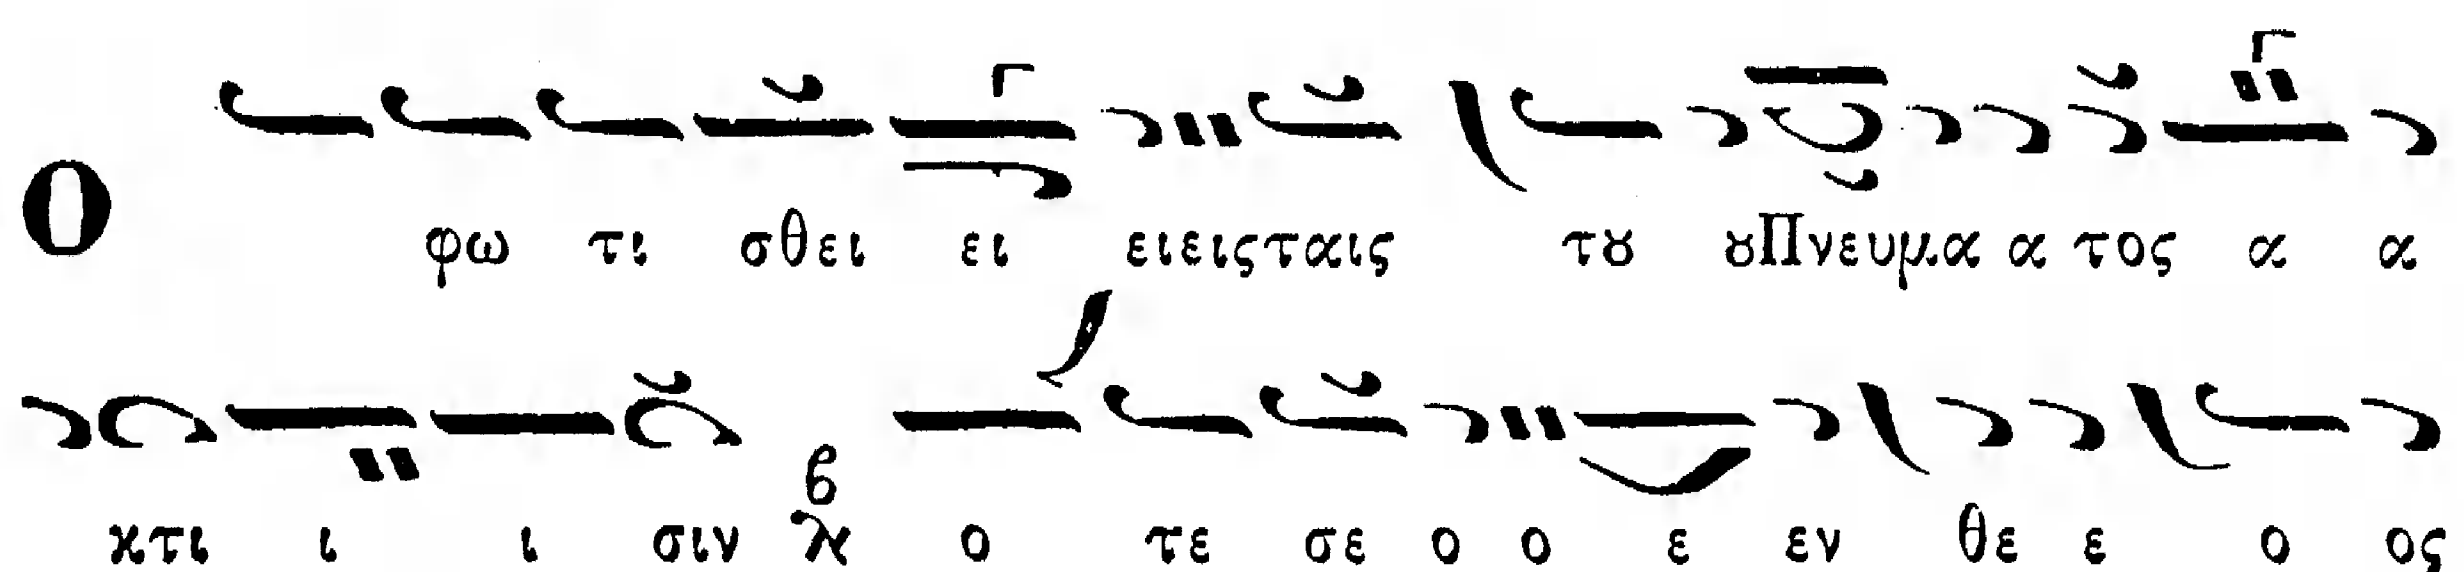 Ο φω τι σθει ει ειειςταις τȣ ȣΠνευμα α τος α α
κτι ι ι σιν ϗ ο τε σε ο ο ε εν θε ε ο ος